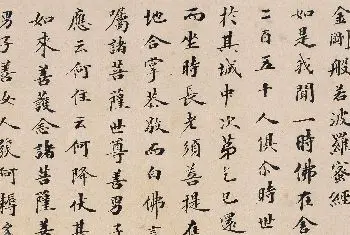 金剛般若波羅蜜經
如是我聞一時佛在舍
二百五十人俱尒時世
於其城中次第乞已還
而坐時長老須菩提在
地合掌恭敬而白佛言
囑諸菩薩世尊善男子
應云何住云何降伏其
如來善護念諸菩薩善
男子善女人發阿耨